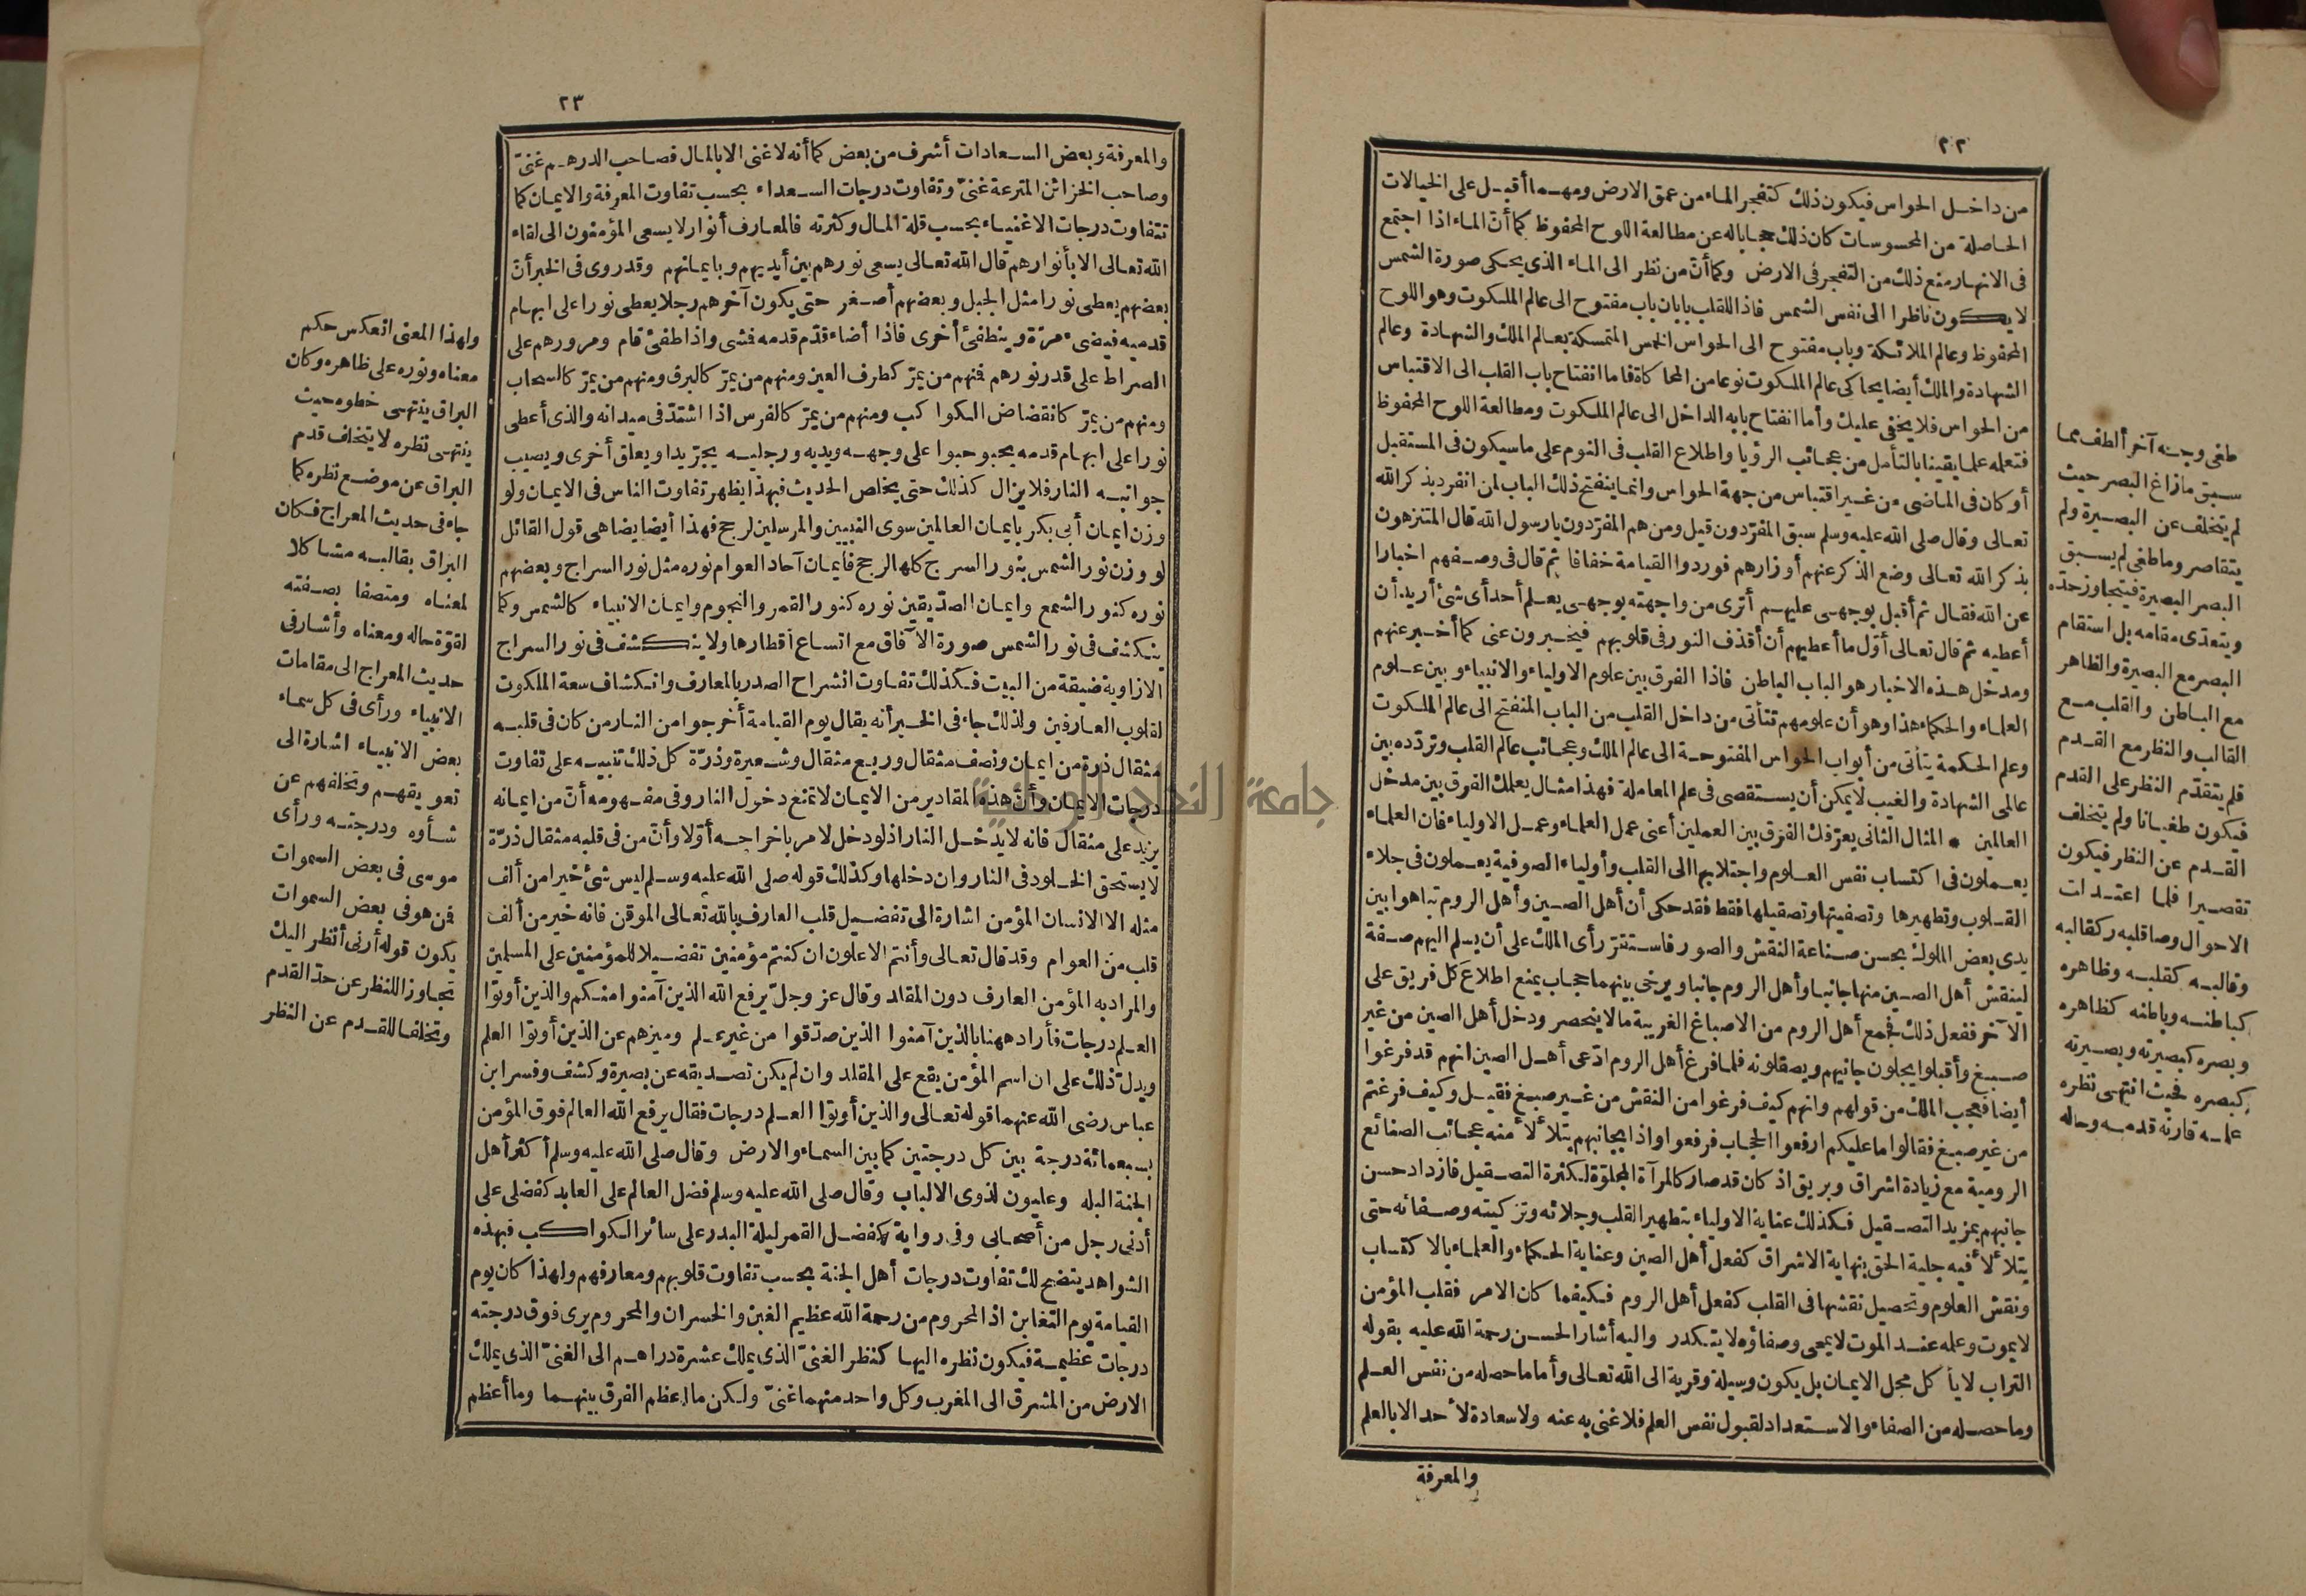 ٢٢
من داخل الحواس فيكون ذلك كتفجر الماء من عمق الارض ومهما أقبل على الخيالات
الحاصلة من المحسوسات كان ذلك حجابا له عن مطالعة اللوح المحفوظ كما أن الماء اذا اجتمع
فى الانهار منع ذلك من التفجر فى الارض وكما أن من نظر الى الماء الذى يحكى صورة الشمس
لا يكون ناظرا الى نفس الشمس فاذا للقلب بابان باب مفتوح الى عالم الملكوت وهو اللوح
المحفوظ وعالم الملائكة وباب مفتوح الى الحواس الخمس المتمسكة بعالم الملك والشهادة وعالم
الشهادة والملك أيضا يحاكى عالم الملكوت نوعا من المحاكاة فاما انفتاح باب القلب الى الاقتباس
من الحواس فلا يخفى عليك وأما انفتاح بابه الداخل الى عالم الملكوت ومطالعة اللوح المحفوظ
فتعلمه علما يقينا بالتأمل من عجائب الرؤيا واطلاع القلب فى النوم على ما سيكون فى المستقبل
أو كان فى الماضى من غير اقتباس من جهة الحواس وانما ينفتح ذلك الباب لمن انفرد بذكر الله
تعالى وقال صلى الله عليه وسلم سبق المفرّدون قيل ومن هم المفرّدون يا رسول الله قال المتنزهون
بذكر الله تعالى وضع الذكر عنهم أوزارهم فوردوا القيامة خفافا ثم قال فى وصفهم اخبارا
عن الله فقال ثم أقبل بوجهى عليهم أترى من واجهته بوجهى يعلم أحد أى شئ أريد أن
أعطيه ثم قال تعالى أوّل ما أعطيهم أن أقذف النور فى قلوبهم فيخبرون عنى كما أخبر عنهم
ومدخل هذه الاخبار هو الباب الباطن فاذا الفرق بين علوم الاولياء والانبياء وبين علوم
العلماء والحكماء هذا وهو أن علومهم تتأتى من داخل القلب من الباب المنفتح الى عالم الملكوت
وعلم الحكمة يتأتى من أبواب الحواس المفتوحة الى عالم الملك وعجائب عالم القلب وتردّده بين
عالمى الشهادة والغيب لا يمكن أن يستقصى فى علم المعاملة فهذا مثال يعلمك الفرق بين مدخل
العالمين • المثال الثانى يعرّفك الفرق بين العملين أعنى عمل العلماء وعمل الاولياء فان العلماء
يعملون فى اكتساب نفس العلوم واجتلابها الى القلب وأولياء الصوفية يعملون فى جلاء
القلوب وتطهيرها وتصفيتها وتصقيلها فقط فقد حكى أن أهل الصين وأهل الروم تباهوا بين
يدى بعض الملوك بحسن صناعة النقش والصور فاستقرّ رأى الملك على أن يسلم اليهم صفة
لينقش أهل الصين منها جانبا وأهل الروم جانبا ويرخى بينهما حجاب يمنع اطلاع كل فريق على
الآخر ففعل ذلك فجمع أهل الروم من الاصباغ الغريبة ما لا ينحصر ودخل أهل الصين من غير
صبغ وأقبلوا يجلون جانبهم ويصقلونه فلما فرغ أهل الروم ادّعى أهل الصين انهم قد فرغوا
أيضا فعجب الملك من قولهم وانهم كيف فرغوا من النقش من غير صبغ فقيل وكيف فرغتم
من غير صبغ فقالوا ما عليكم ارفعوا الحجاب فرفعوا واذا بجانبهم يتلألأ منه عجائب الصنائع
الرومية مع زيادة اشراق وبريق اذ كان قد صار كالمرآة المجلوّة لكثرة التصقيل فازداد حسن
جانبهم بمزيد التصقيل فكذلك عناية الاولياء بتطهير القلب وجلائه وتزكيته وصفائه حتى
يتلألأ فيه جلية الحق بنهاية الاشراق كفعل أهل الصين وعناية الحكماء والعلماء بالاكتساب
ونقش العلوم وتحصيل نقشها فى القلب كفعل أهل الروم فكيفما كان الامر فقلب المؤمن
لا يموت وعلمه عند الموت لا يمحى وصفاؤه لا يتكدر واليه أشار الحسن رحمة الله عليه بقوله
التراب لا يأكل محل الايمان بل يكون وسيلة وقربة الى الله تعالى وأما ما حصله من نفس العلم
وما حصله من الصفاء والاستعداد لقبول نفس العلم فلا غنى به عنه ولا سعادة لأحد الا بالعلم
والمعرفة
طغى وجه آخر ألطف مما
سبق ما زاغ البصر حيث
لم يتخلف عن البصيرة ولم
يتقاصر وما طغى لم يسبق
البصر البصيرة فيتجاوز حدّه
ويتعدّى مقامه بل استقام
البصر مع البصيرة والظاهر
مع الباطن والقلب مع
القالب والنظر مع القدم
فلم يتقدّم النظر على القدم
فيكون طغيانا ولم يتخلف
القدم عن النظر فيكون
تقصيرا فلما اعتدلت
الاحوال وصار قلبه كقالبه
وقالبه كقلبه وظاهره
كباطنه وباطنه كظاهره
وبصره كبصيرته وبصيرته
كبصره فحيث انتهى نظره
علمه قارنه قدمه وحاله
٢٣
والمعرفة وبعض السعادات أشرف من بعض كما أنه لا غنى الا بالمال فصاحب الدرهم غنىّ
وصاحب الخزائن المترعة غنىّ وتفاوت درجات السعداء بحسب تفاوت المعرفة والايمان كما
تتفاوت درجات الاغنياء بحسب قلة المال وكثرته فالمعارف أنوار لا يسعى المؤمنون الى لقاء
الله تعالى الا بأنوارهم قال الله تعالى يسعى نورهم بين أيديهم وبايمانهم وقد روى فى الخبر أن
بعضهم يعطى نورا مثل الجبل وبعضهم أصغر حتى يكون آخرهم رجلا يعطى نورا على ابهام
قدميه فيضىء مرّة وينطفئ أخرى فاذا أضاء قدّم قدمه فشى واذا طفئ قام ومرورهم على
الصراط على قدر نورهم فمنهم من يمرّ كطرف العين ومنهم من يمرّ كالبرق ومنهم من يمرّ كالسحاب
ومنهم من يمرّ كانقضاض الكواكب ومنهم من يمرّ كالفرس اذا اشتدّ فى ميدانه والذى أعطى
نورا على ابهام قدمه يحبو حبوا على وجهه ويديه ورجليه يجرّ يدا ويعلق أخرى ويصيب
جوانبه النار فلا يزال كذلك حتى يخلص الحديث فبهذا يظهر تفاوت الناس فى الايمان ولو
وزن ايمان أبى بكر بايمان العالمين سوى النبيين والمرسلين لرجح فهذا أيضا يضاهى قول القائل
لو وزن نور الشمس بنور السرج كلها لرجح فأيمان آحاد العوام نوره مثل نور السراج وبعضهم
نوره كنور الشمع وايمان الصدّيقين نوره كنور القمر والنجوم وايمان الانبياء كالشمس وكما
ينكشف فى نور الشمس صورة الآفاق مع اتساع أقطارها ولا ينكشف فى نور السراج
الا زاوية ضيقة من البيت فكذلك تفاوت انشراح الصدر بالمعارف وانكشاف سعة الملكوت
لقلوب العارفين ولذلك جاء فى الخبر أنه يقال يوم القيامة أخرجوا من النار من كان فى قلبه
مثقال ذرة من ايمان ونصف مثقال وربع مثقال وشعيرة وذرّة كل ذلك تنبيه على تفاوت
درجات الايمان وأن هذه المقادير من الايمان لا تمنع دخول النار وفى مفهومه أن من ايمانه
يزيد على مثقال فانه لا يدخل النار اذ لو دخل لامر باخراجه أوّلا وأن من فى قلبه مثقال ذرّة
لا يستحق الخلود فى النار وان دخلها وكذلك قوله صلى الله عليه وسلم ليس شئ خيرا من ألف
مثله الا الانسان المؤمن اشارة الى تفضيل قلب العارف بالله تعالى الموقن فانه خير من ألف
قلب من العوام وقد قال تعالى وأنتم الاعلون ان كنتم مؤمنين تفضيلا للمؤمنين على المسلمين
والمراد به المؤمن العارف دون المقلد وقال عز وجلّ يرفع الله الذين آمنوا منكم والذين أوتوا
العلم درجات فأراد ههنا بالذين آمنوا الذين صدّقوا من غير علم وميزهم عن الذين أوتوا العلم
ويدلّ ذلك على ان اسم المؤمن يقع على المقلد وان لم يكن تصديقه عن بصيرة وكشف وفسر ابن
عباس رضى الله عنهما قوله تعالى والذين أوتوا العلم درجات فقال يرفع الله العالم فوق المؤمن
بسبعمائة درجة بين كل درجتين كما بين السماء والارض وقال صلى الله عليه وسلم أكثر أهل
الجنة البله وعليون لذوى الالباب وقال صلى الله عليه وسلم فضل العالم على العابد كفضلى على
أدنى رجل من أصحابى وفى رواية كفضل القمر ليلة البدر على سائر الكواكب فبهذه
الشواهد يتضح لك تفاوت درجات أهل الجنة بحسب تفاوت قلوبهم ومعارفهم ولهذا كان يوم
القيامة يوم التغابن اذ المحروم من رحمة الله عظيم الغبن والخسران والمحروم يرى فوق درجته
درجات عظيمة فيكون نظره اليها كنظر الغنىّ الذى يملك عشرة دراهم الى الغنىّ الذى يملك
الارض من المشرق الى المغرب وكل واحد منهما غنىّ ولكن ما أعظم الفرق بينهما وما أعظم
ولهذا المعنى انعكس حكم
معناه ونوره على ظاهره وكان
البراق ينتهى خطوه حيث
ينتهى نظره لا يتخلف قدم
البراق عن موضع نظره كما
جاء فى حديث المعراج فكان
البراق بقالبه مشاكلا
لمعناه ومتصفا بصفته
لقوّة حاله ومعناه وأشار فى
حديث المعراج الى مقامات
الانبياء ورأى فى كل سماء
بعض الانبياء اشارة الى
تعويقهم وتخلفهم عن
شأوه ودرجته ورأى
موسى فى بعض السموات
فمن هو فى بعض السموات
يكون قوله أرنى أنظر اليك
تجاوزا للنظر عن حدّ القدم
وتخلفا للقدم عن النظر
جامعة النجاح الوطنية